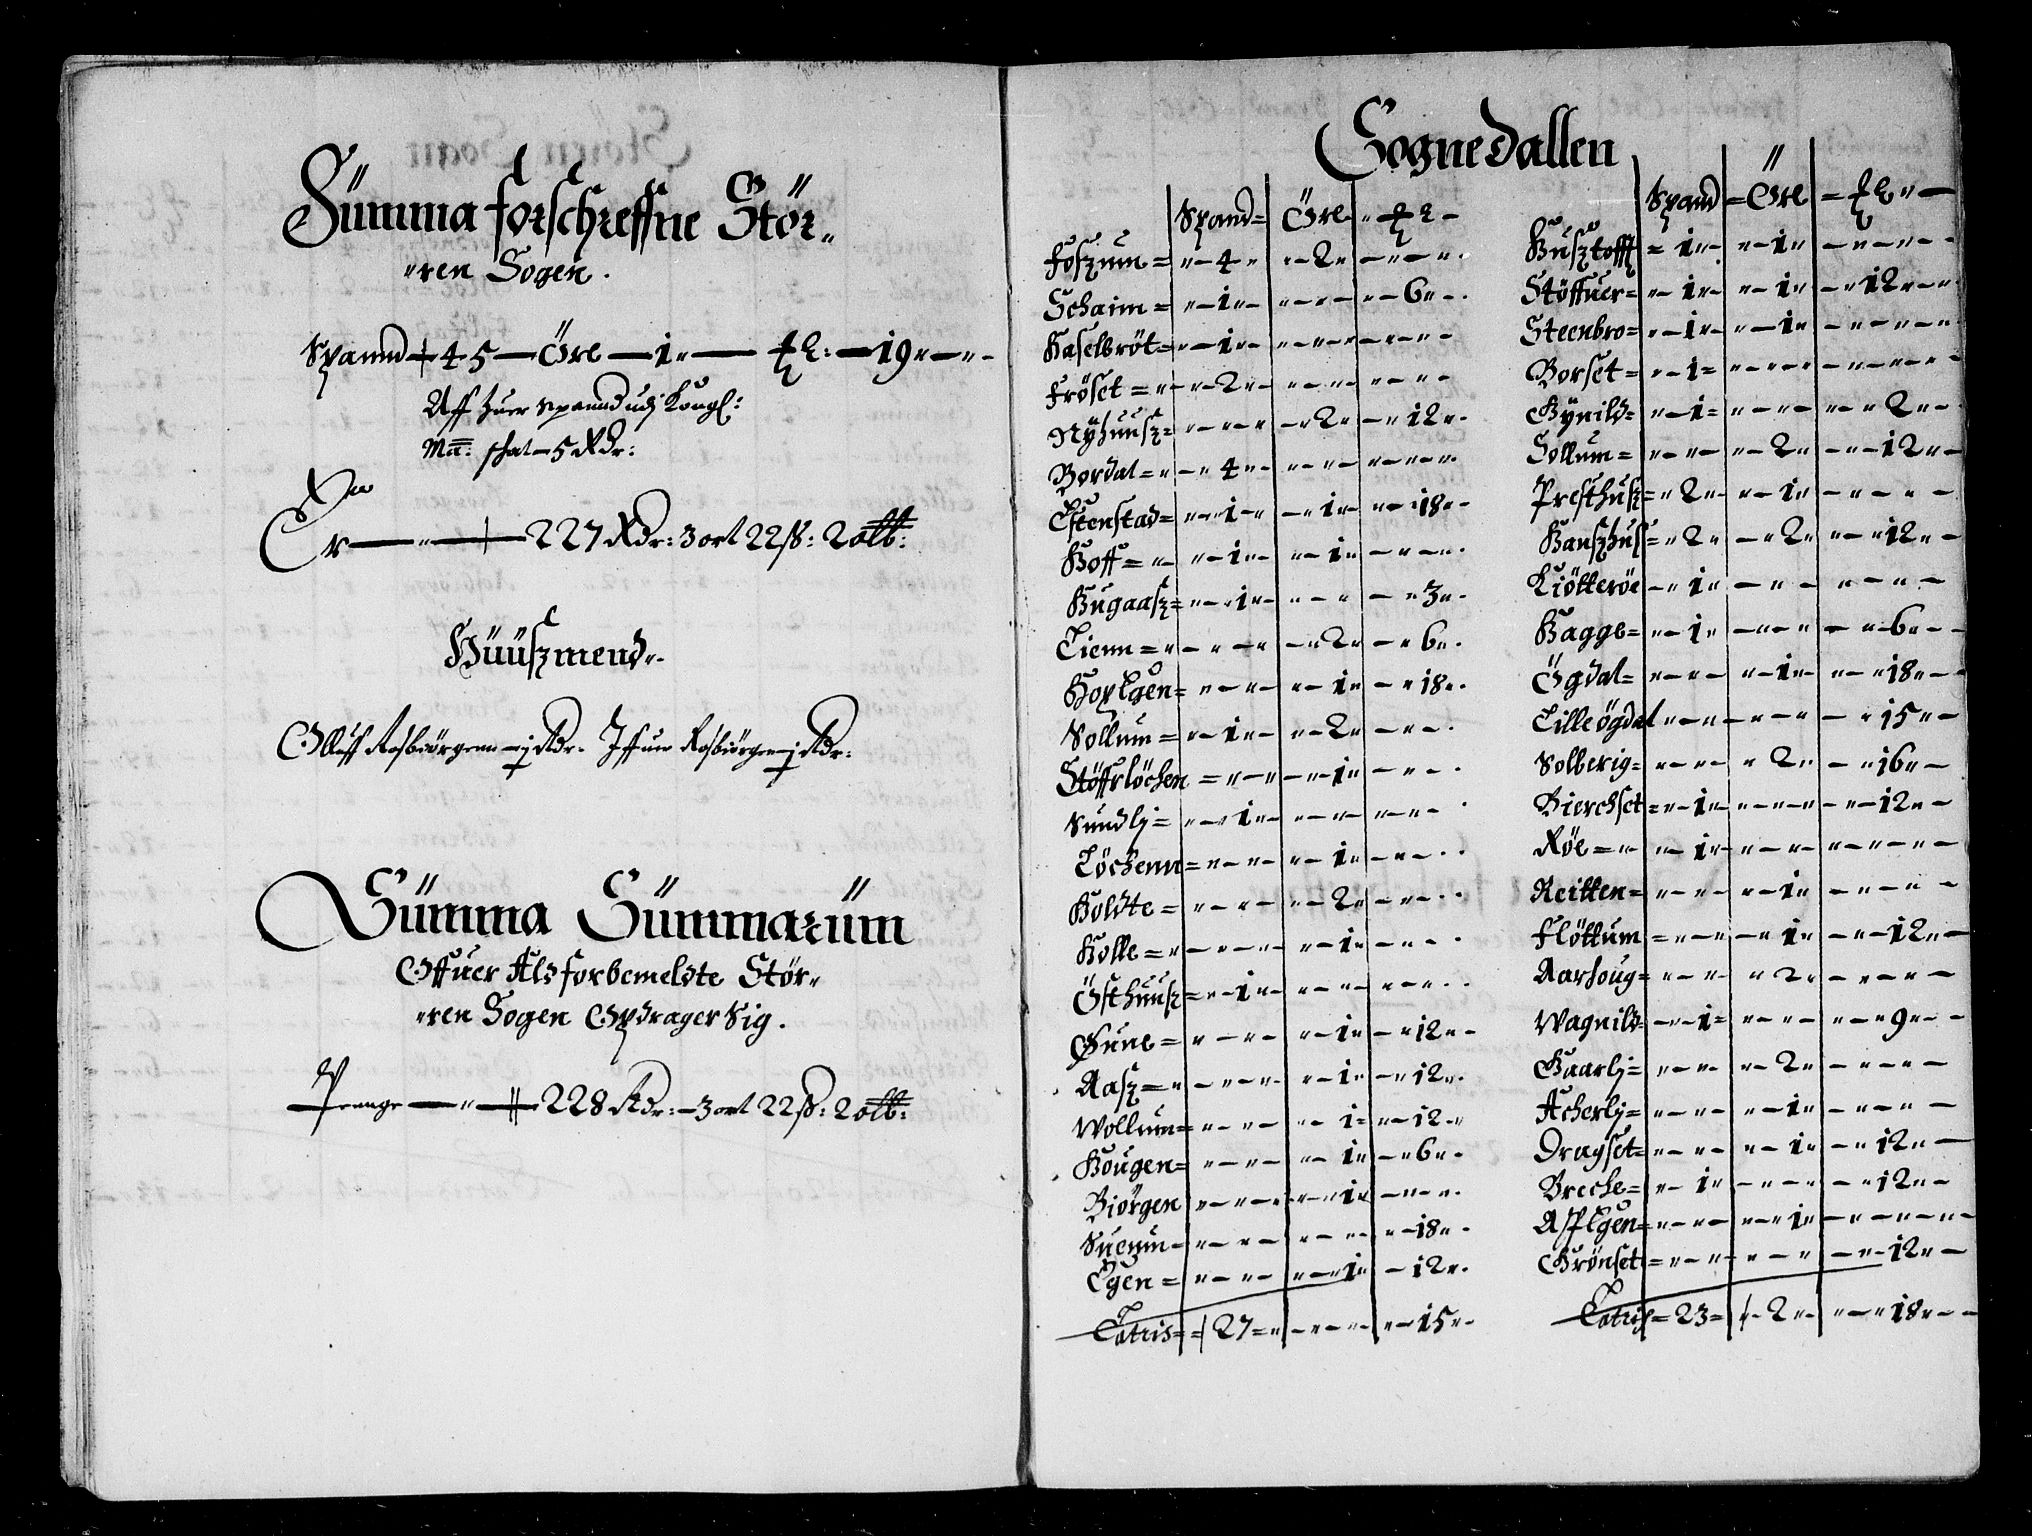 Summa forschreffne Stör„
„ren Sogen.
Spannd 45 — Öre — 1 — — 19
Aff huer spannd udj Kongl:
Ma: schat 5 Rdr:
Er — 227 Rdr: 3 ort 22 ß: 2 alb:
Huuszmend
Olluff Rosbiörgenn — j Rdr. Iffuer Rosbiörgen — j Rdr:
Summa Summarum
Offuer Ald forbemeldte Stör„
„ren Sogen Opdrager Sig.
Penge — 228 Rdr: 3 ort 22 ß: 2 alb:
Sognedallen
Spand= Öre
Foszum= 4 2
Schaim= 1 — 6
Haselbröt= 1
Fröset= 2
Nÿhuusz= — 2 12
Bordal= 4
Estenstad= 1 1 18
Hoff= 1 1
Bugaasz= 1 — 3
Lienn= — 2 6
Hoxlgen= — 1 18
Sollum= 1 2
Stöffrlöchen= — 1
Sundlj= 1
Löchenn= — 1
Holdte= — 2
Holle= — 1
Östhuusz= 1
Gune= — 1 12
Aasz= — 1 12
Wollum= — 1 12
Hougen= — 1 6
Biörgen — 1
— — 18
Egen= — 1 12
Latris= 27 — 15
Spand= Öre
Busztofft= 1 1
Stöffuer= 1 1 12
Steenbro= 1 1
Borset= 1
Gÿnild= 1 — 2
Sollum= — 2 12
Presthusz= 2 1
Hauszhus= 2 2 12
Kiötteröe 1
Hagge= 1 — 6
Ögdal= — 1 18
Lille ögdal — — 15
Solberig= — 2 16
Bierchset= 1 — 12
Röe= 1
Reitten= — 1
Flöttum= — 1 12
Aarhoug= — 2
Wagnild= 1 — 9
Gaarlj= — 2
Acherlj= — 1
Dragset= — 1 12
Breche= 1 — 12
Asplgen= — 1
Grönset= — — 12
Latris= 23 2 18